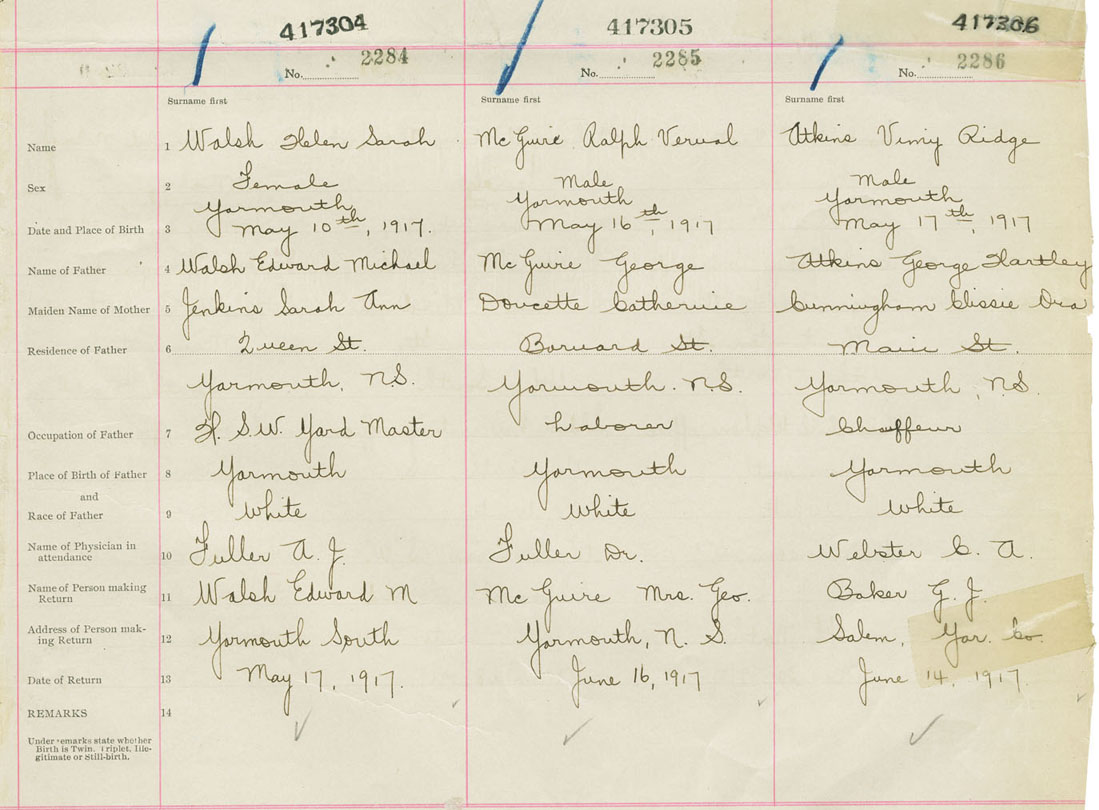 417304 417305 417306
No. 2284 No. 2285 No. 2286
Surname first Surname first Surname first
Name 1 Walsh Helen Sarah McGuire Ralph Verual Atkins Vimy Ridge
Sex 2 Female Male Male
Yarmouth Yarmouth Yarmouth
Date and Place of Birth 3 May 10th, 1917. May 16th, 1917 May 17th, 1917
Name of Father 4 Walsh Edward Michael McGuire George Atkins George Hartley
Maiden Name of Mother 5 Jenkins Sarah Ann Doucette Catherine Cunningham Clissie Ora
Residence of Father 6 Queen St. Barnard St. Main St.
Yarmouth, N.S. Yarmouth. N.S. Yarmouth, N.S
Occupation of Father 7 H. S.W. Yard Master Laborer Chauffeur
Place of Birth of Father 8 Yarmouth Yarmouth Yarmouth
and
Race of Father 9 White White White
Name of Physician in
attendance 10 Fuller A. J. Fuller Dr. Webster C. A.
Name of Person making
Return 11 Walsh Edward M McGuire Mrs. Geo. Baker G. J.
Address of Person mak-
ing Return 12 Yarmouth South Yarmouth, N. S. Salem, Yar. Co.
Date of Return 13 May 17, 1917. June 16, 1917 June 14, 1917.
REMARKS 14
Under remarks state whether
Birth is Twin, Triplet, Ille-
gitimate or Still-birth.